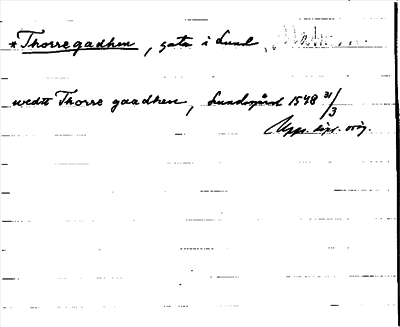 *Thorregadhen, gata i Lund,
wedtt Thorre gaadhen, Lundagård 1548 31/3
Upps. dipl. orig.